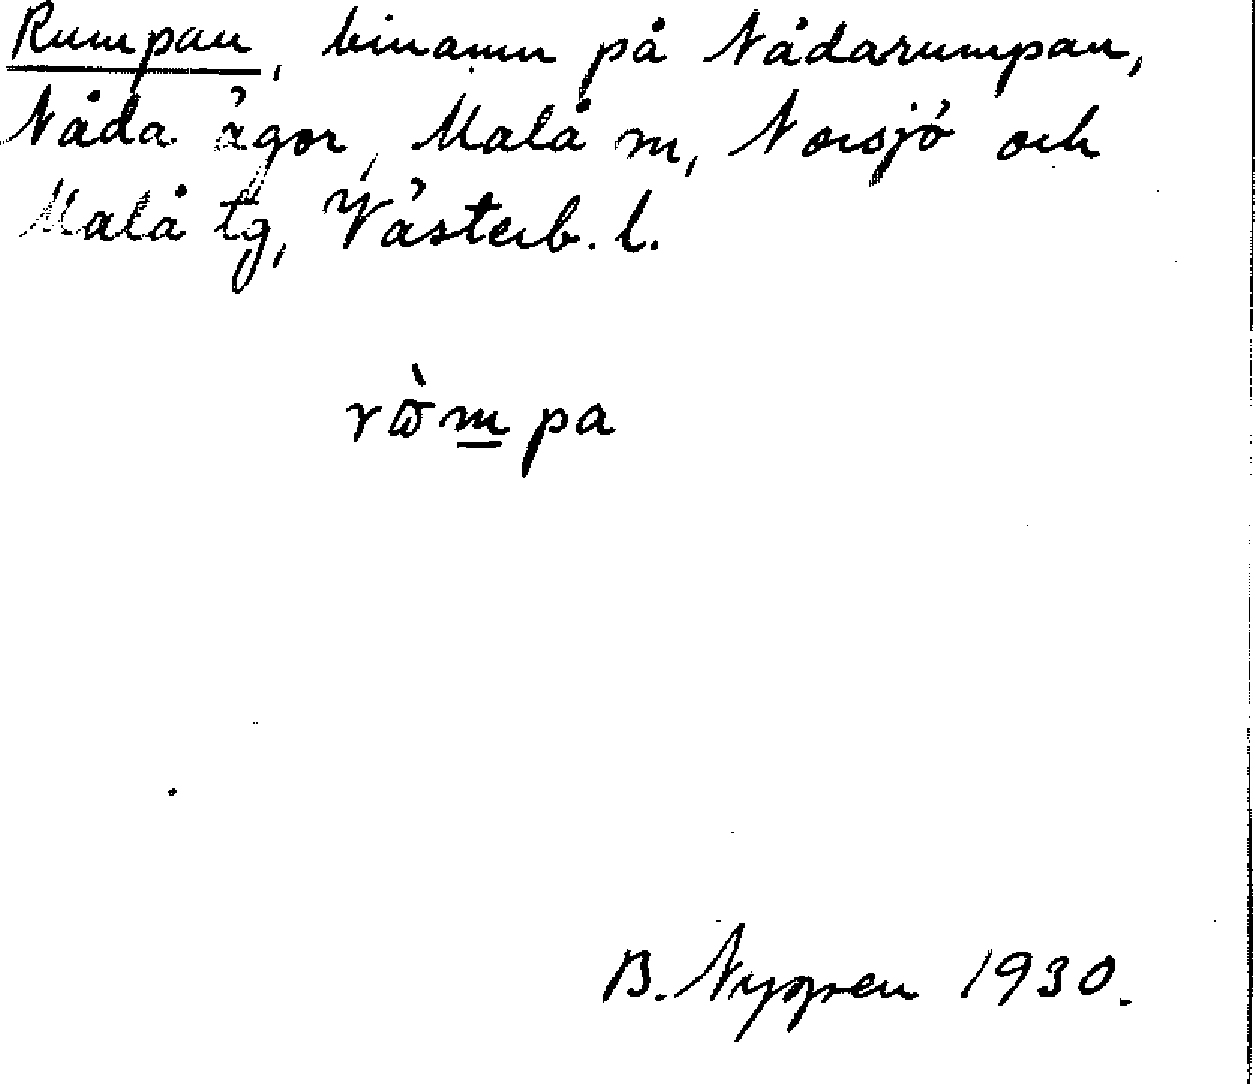 Rumpan, binamn på Nådarumpan,
Nåda ägor, Malå sn, Norsjö och
Malå tg, Västerb. l.
rɷ̀m̲pa
B. Nygren 1930.